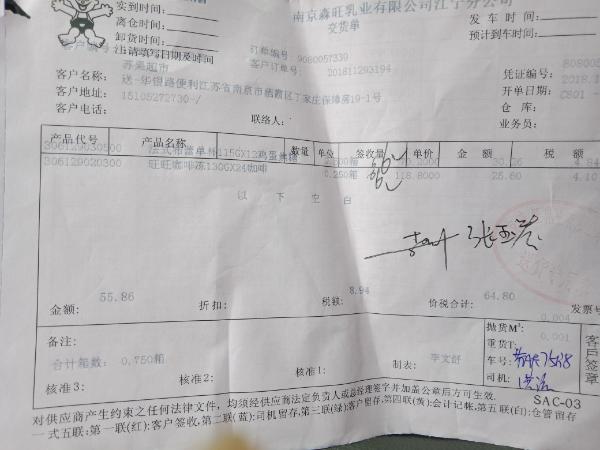 南京森旺乳业有限公司江宁分公司
交货单
实到时间:
离仓时间:
卸货时间:
上请填写日期及时间
发车时间:
预计到车时间:
订单编号 9080057339
客户订单号: 201811293194
苏果超市
客户名称:
送-华银路便利江苏省南京市栖霞区丁家庄保障房19-1号
客户地址:
15105272730-/
客户电话:
联络人:
凭证编号:
开单日期: 2018.1
仓库: C801
业务员:
产品代号 产品名称 数量 单位 签收量 单价 金额 税额
306129030500 法式布蕾单杯115GX12鸡蛋焦糖
306129020300 旺旺咖啡冻130GX24咖啡 0.250箱 118.8000 25.60 4.10
以下空白
金额: 55.86 折扣: 税额: 8.94 价税合计: 64.80 发票号
备注:
合计箱数: 0.750箱
抛货M³: 0.004
重货T: 0.001
车号:
司机:
客户签章
核准3: 核准2: 核准1: 制表: 李文舒
SAC-03
对供应商产生约束之任何法律文件,均须经供应商法定负责人或总经理签字并加盖公章后方可生效.
一式五联:第一联(红):客户签收,第二联(蓝):司机留存,第三联(绿):客户留存,第四联(黄):会计记帐,第五联(白):仓管留存